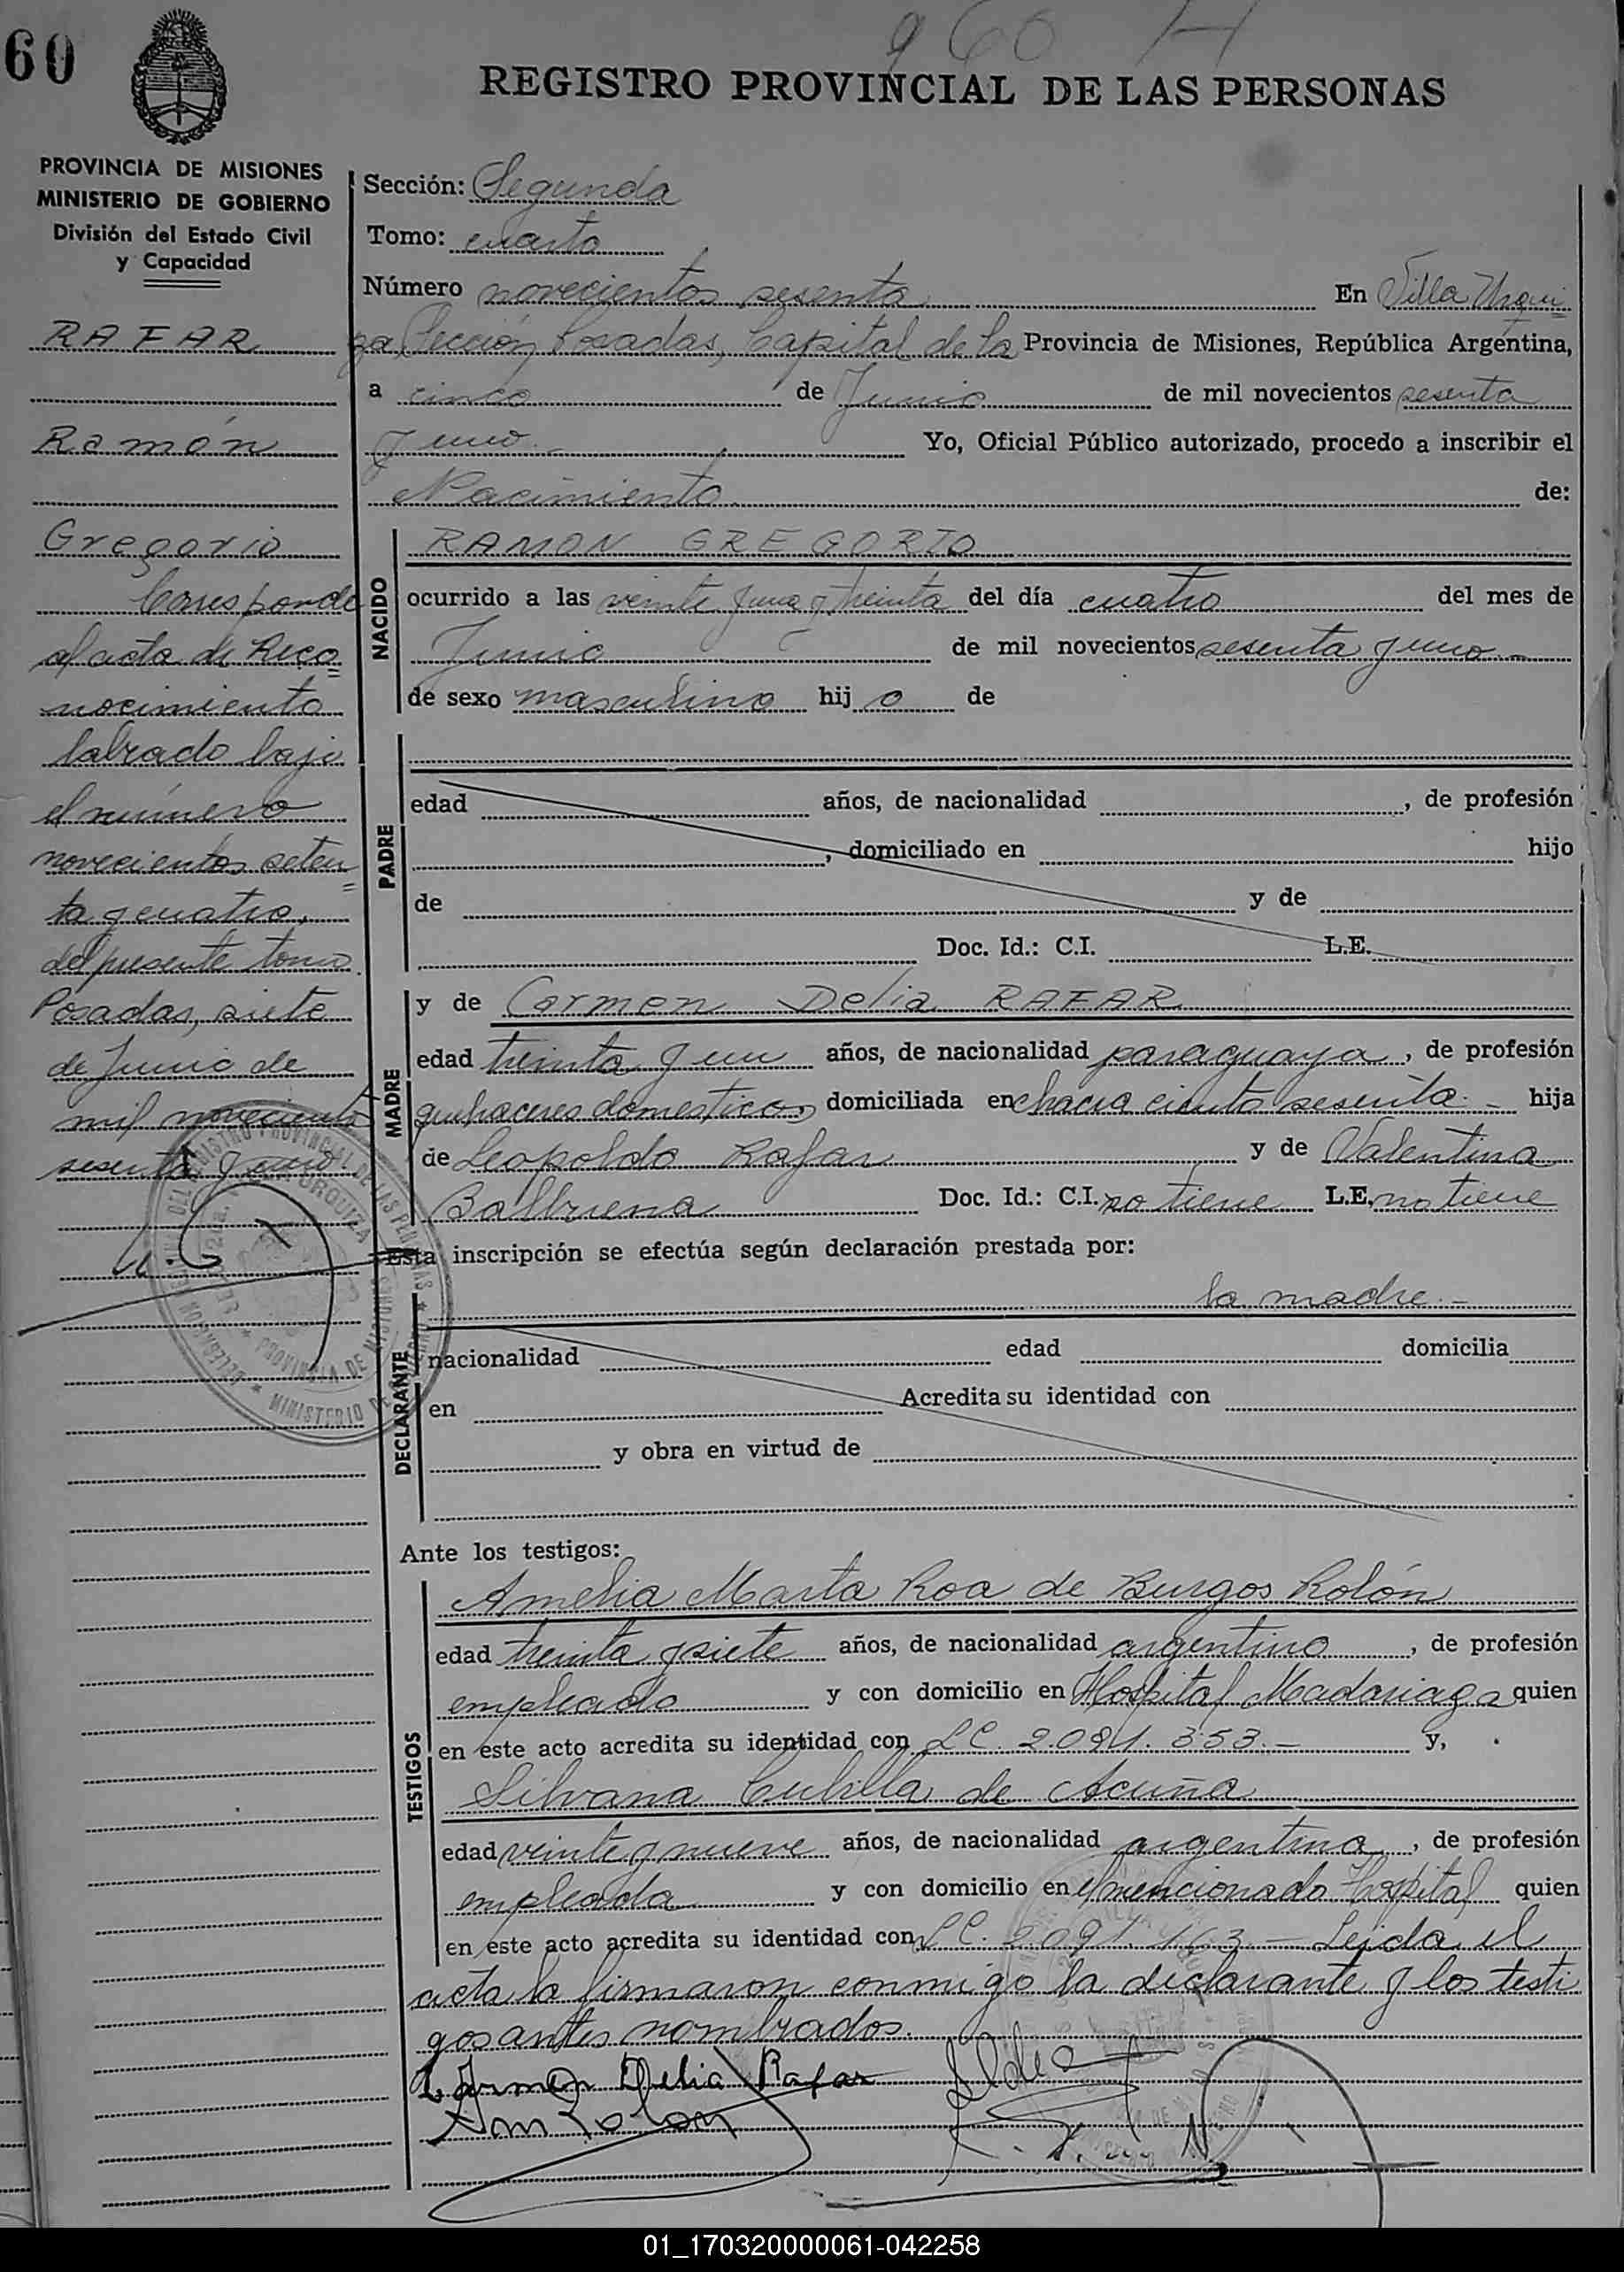 960
60
REGISTRO PROVINCIAL DE LAS PERSONAS
PROVINCIA DE MISIONES
MINISTERIO DE GOBIERNO
División del Estado Civil
y Capacidad
RAFAR
Ramón
Gregorio
Corresponde
al acta de Reco=
nocimiento
labrado bajo
el número
novecientos seten=
ta y cuatro,
del presente tomo.
Posadas, siete
de Junio de
mil novecientos
sesenta y uno.
Sección: Segunda
Tomo: cuarto
Número novecientos sesenta En Villa Urqui=
za, Sección Posadas, Capital de la Provincia de Misiones, República Argentina,
a cinco de Junio de mil novecientos sesenta
y uno.- Yo, Oficial Público autorizado, procedo a inscribir el
Nacimiento de:
NACIDO
RAMON GREGORIO
ocurrido a las veinte y una y treinta del día cuatro del mes de
Junio de mil novecientos sesenta y uno.-
de sexo masculino hij o de
PADRE
edad años, de nacionalidad , de profesión
, domiciliado en hijo
de y de
Doc. Id.: C.I. L.E.
MADRE
y de Carmen Delia RAFAR
edad treinta y un años, de nacionalidad paraguaya, de profesión
quehaceres domesticos, domiciliada en chacra ciento sesenta.- hija
de Leopoldo Rafar y de Valentina
Balbuena Doc. Id.: C.I. no tiene L.E. no tiene
Esta inscripción se efectúa según declaración prestada por:
la madre.-
DECLARANTE
nacionalidad edad domicilia
en Acredita su identidad con
y obra en virtud de
Ante los testigos:
TESTIGOS
Amelia Marta Roa de Burgos Rolón
edad treinta y siete años, de nacionalidad argentino, de profesión
empleado y con domicilio en Hospital Madariaga quien
en este acto acredita su identidad con L.C. 2.091.353.- y,
Silvana Cubilla de Acuña
edad veinte y nueve años, de nacionalidad argentina, de profesión
empleada y con domicilio en el mencionado Hospital quien
en este acto acredita su identidad con L.C. 2.091.163 - Leída el
acta la firmaron conmigo la declarante y los testi
gos antes nombrados.
Carmen Delia Rafar
01_170320000061-042258